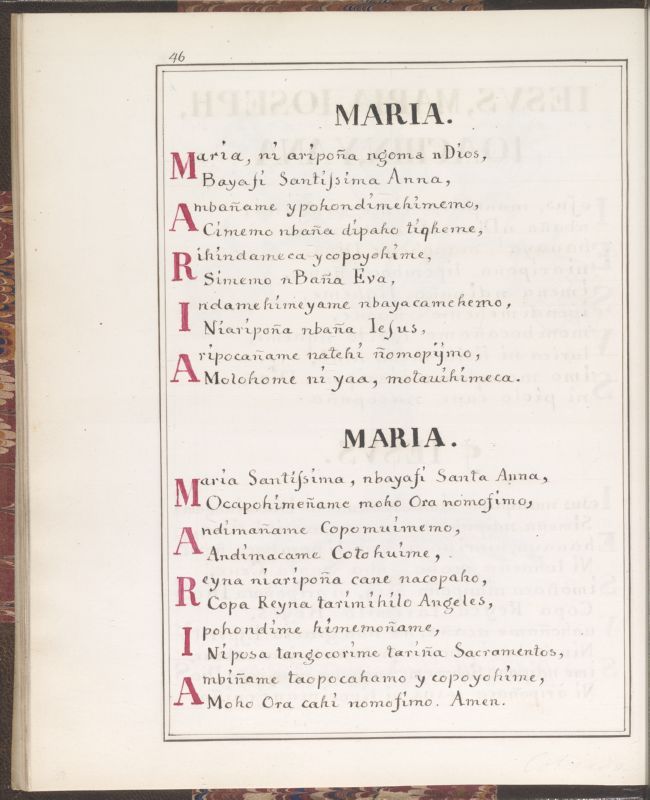 46
MARIA.
Maria, ni aripoña ngoma nDios,
Bayaſi Santiſsima Anna,
Ambañame ypohondimehimemo,
Cimemo nbaña dipaho tiqheme,
Rihindameca ycopoyohime,
Simemo nBaña Eva,
Indamehimeyame nbayacamehemo,
Niaripoña nbaña Ieſus,
Aripocañame natehi ñomopijmo,
Molohome ni yaa, motauihimeca.
MARIA.
Maria Santiſsima, nbayaſi Santa Anna,
Ocapohimeñame moho Ora nomoſimo,
Andimañame Copomuimemo,
Andimacame Cotohuime,.
Reyna niaripoña cane nacopaho,
Copa Reyna tarimihilo Angeles,
Ipohondime himemoñame,
Niposa tangocorime tariña Sacramentos,
Ambiñame taopocahamo y copoyohime,
Moho Ora cahi nomoſimo. Amen.